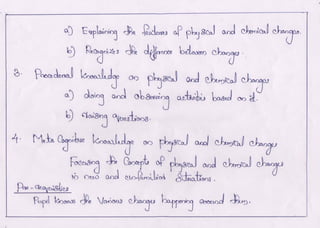 a) Explaining the features of physical and chemical changes.
b) Recognizes the difference between changes.
3. Procedural Knowledge on physical and chemical changes
a) doing and observing activities based on it.
b) raising questions.
4. Meta Cognitive Knowledge on physical and chemical changes
Focusing the Concepts of physical and chemical changes
in new and unfamiliar situations.
Pre-requisites
Pupil knows the various changes happening around them.